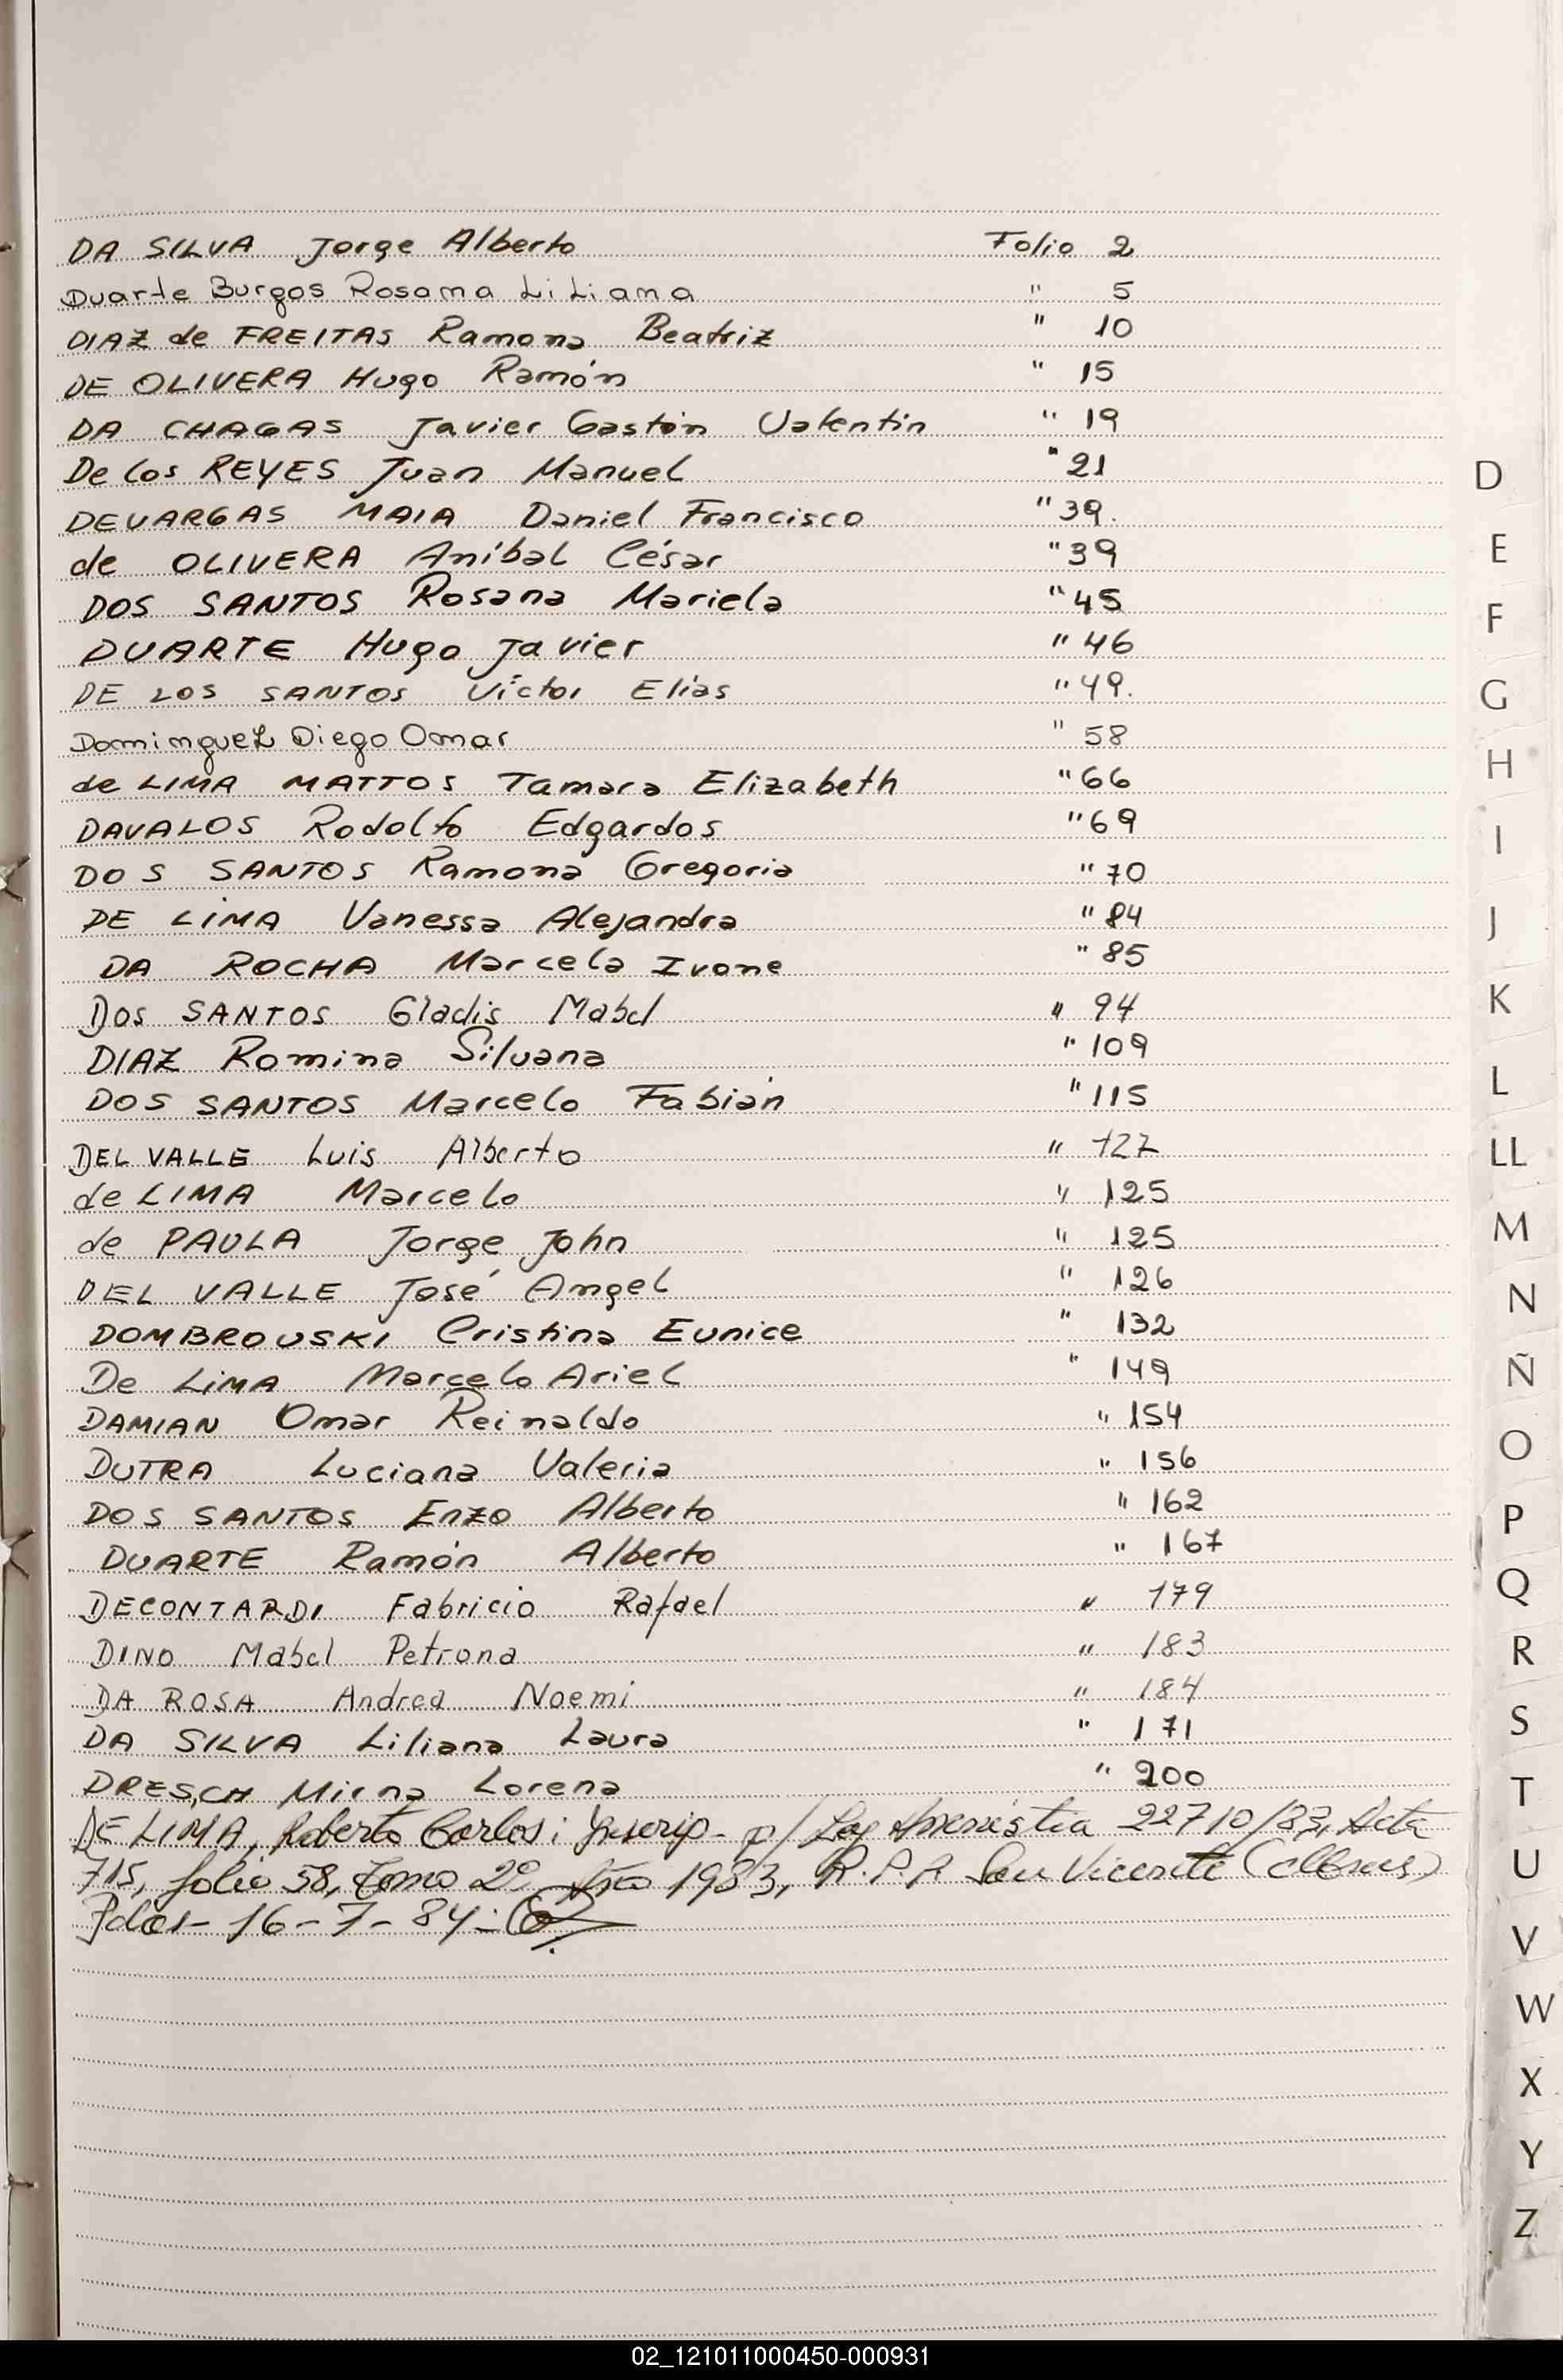 DA SILVA Jorge Alberto Folio 2
Duarte Burgos Rosana LiLiana " 5
DIAZ de FREITAS Ramona Beatriz " 10
DE OLIVERA Hugo Ramón " 15
DA CHAGAS Javier Gastón Valentín " 19
De los REYES Juan Manuel " 21
DEVARGAS MAIA Daniel Francisco " 39.
de OLIVERA Aníbal César " 39
DOS SANTOS Rosana Mariela " 45
DUARTE Hugo Javier " 46
DE LOS SANTOS Víctor Elías " 49.
Dominguez Diego Omar " 58
de LIMA MATTOS Tamara Elizabeth " 66
DAVALOS Rodolfo Edgardos " 69
DOS SANTOS Ramona Gregoria " 70
DE LIMA Vanessa Alejandra " 84
DA ROCHA Marcela Ivone " 85
DOS SANTOS Gladis Mabel " 94
DIAZ Romina Silvana " 109
DOS SANTOS Marcelo Fabián " 115
DEL VALLE Luis Alberto " 127
de LIMA Marcelo " 125
de PAULA Jorge John " 125
DEL VALLE José Angel " 126
DOMBROUSKI Cristina Eunice " 132
De LIMA Marcelo Ariel " 149
DAMIAN Omar Reinaldo " 154
DUTRA Luciana Valeria " 156
DOS SANTOS Enzo Alberto " 162
DUARTE Ramón Alberto " 167
DECONTARDI Fabricio Rafael " 179
DINO Mabel Petrona " 183
DA ROSA Andrea Noemi " 184
DA SILVA Liliana Laura " 171
DRESCH Mirna Lorena " 200
DE LIMA, Roberto Carlos: Inscrip- p/ Ley Amnistia 22710/83, Acta
715, folio 58, Tomo 2º Año 1983, R.P.P. San Vicente
16-7-84-
D
E
F
G
H
I
J
K
L
LL
M
N
Ñ
O
P
Q
R
S
T
U
V
W
X
Y
Z
02_121011000450-000931